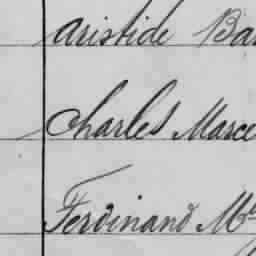 Aristide Ba
Charles Marce
Ferdinand M